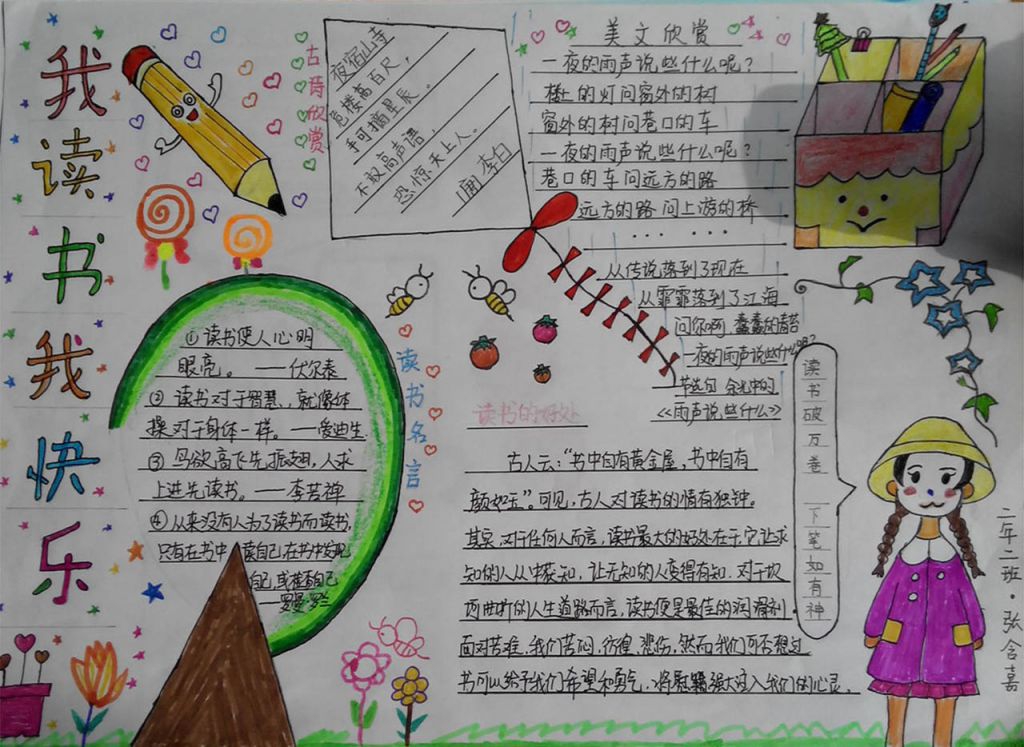 我读书我快乐
古诗欣赏
夜宿山寺
危楼高百尺，
手可摘星辰。
不敢高声语，
恐惊天上人。
[唐] 李白
美文欣赏
一夜的雨声说些什么呢？
楼上的灯问窗外的树
窗外的树问巷口的车
一夜的雨声说些什么呢？
巷口的车问远方的路
远方的路问上游的桥
... ...
从传说落到了现在
从霏霏落到了江海
问你啊，蠢蠢的青苔
一夜的雨声说些什么呢？
节选自 余光中的
《雨声说些什么》
读书名言
①读书使人心明
眼亮。——伏尔泰
② 读书对于智慧，就像体
操对于身体一样。——爱迪生
③ 鸟欲高飞先振翅，人求
上进先读书。——李苦禅
④从来没有人为了读书而读书，
只有在书中读自己，在书中发现
自己，或检查自己
——罗曼·罗兰
读书的好处
古人云：“书中自有黄金屋，书中自有
颜如玉”。可见，古人对读书的情有独钟。
其实，对于任何人而言，读书最大的好处在于：它让求
知的人从中获知，让无知的人变得有知。对于坎
坷曲折的人生道路而言，读书便是最佳的润滑剂。
面对苦难，我们苦闷、彷徨、悲伤，
书可以给予我们希望和勇气，将慰藉
我们的心灵。
读书破万卷 下笔如有神
二年二班·张含嘉